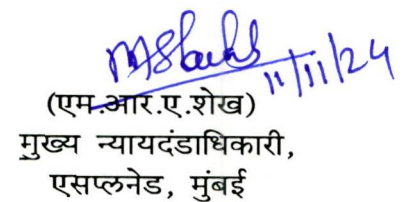 11/11/24
(एम.आर.ए.शेख)
मुख्य न्यायदंडाधिकारी,
एसप्लनेड, मुंबई